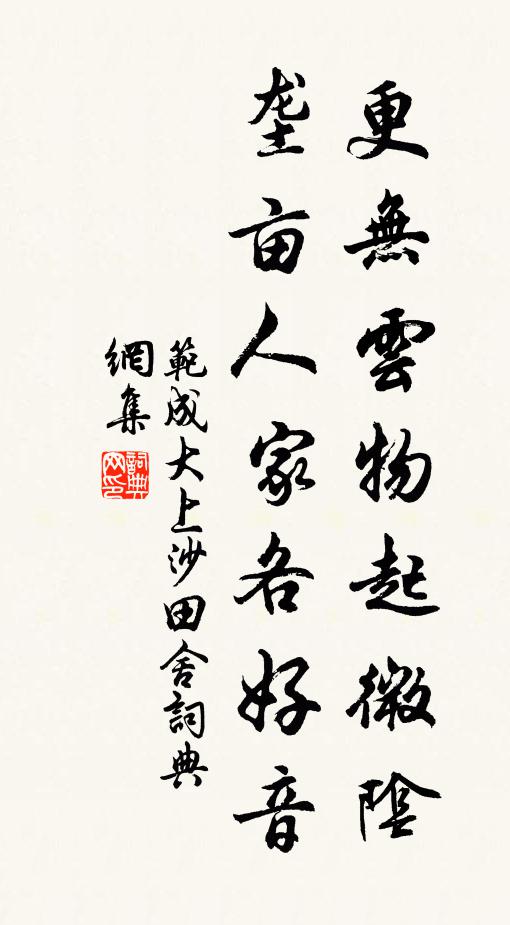 更無雲物起微陰
垄亩人家各好音
範成大上沙田舍詞典
網集
詞典网印